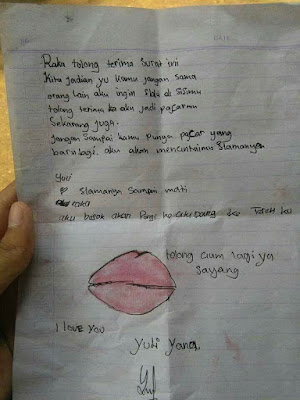 Raka tolong terima surat ini
Kita Jadian yu kamu jangan sama
orang lain aku ingin ada di sisimu
tolong terima ka aku jadi pacarmu
Sekarang juga.
Jangan sampai kamu punya pacar yang
baru lagi. aku akan mencintaimu slamanya
Yuli
Slamanya sampai mati
raka
aku besok akan Pergi ke
tolong cium lagi ya
sayang
I LOVE YOU
Yuli Yana.